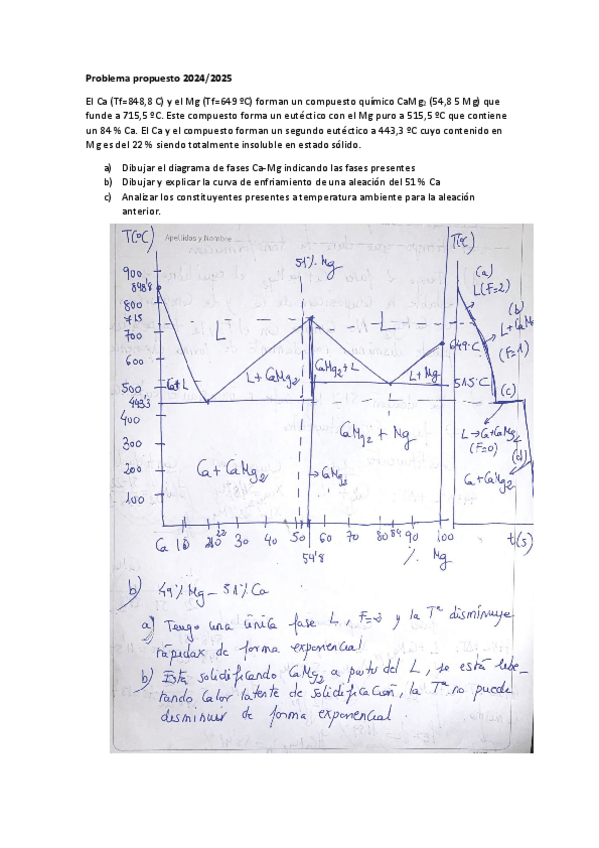 Problema propuesto 2024/2025
El Ca (Tf=848,8 C) y el Mg (Tf=649 ºC) forman un compuesto químico CaMg₂ (54,8 5 M) que
funde a 715,5 ºC. Este compuesto forma un eutéctico con el Mg puro a 515,5 ºC que contiene
un 84 % Ca. El Ca y el compuesto forman un segundo eutéctico a 443,3 ºC cuyo contenido en
Mg es del 22 % siendo totalmente insoluble en estado sólido.
a) Dibujar el diagrama de fases Ca-Mg indicando las fases presentes
b) Dibujar y explicar la curva de enfriamiento de una aleación del 51 % Ca
c) Analizar los constituyentes presentes a temperatura ambiente para la aleación
anterior.
T(ºC) Apellidos y Nombre T(ºC)
51% Mg
900
848'8
800
715
700
600
500
443'3
400
300
200
100
L
L
Ca+L
L+CaMg₂
CaMg₂+L
L+Mg
649ºC
515ºC
CaMg₂ + Mg
Ca + CaMg₂
→CaMg₂
(a)
L (F=2)
(b)
L+CaM
(F=1)
(c)
L→Ca+CaMg₂
(F=0)
(d)
Ca+CaMg₂
Ca 10 20 22 30 40 50 60 70 80 84 90 100 t(s)
54'8 % Mg
b) 49% Mg – 51% Ca
a) Tengo una única fase L, F=2 y la Tª disminuye
rápidax de forma exponencial
b) Está solidificando CaMg₂ a partir del L, se está libe-
rando calor latente de solidificación, la Tª no puede
disminuir de forma exponencial